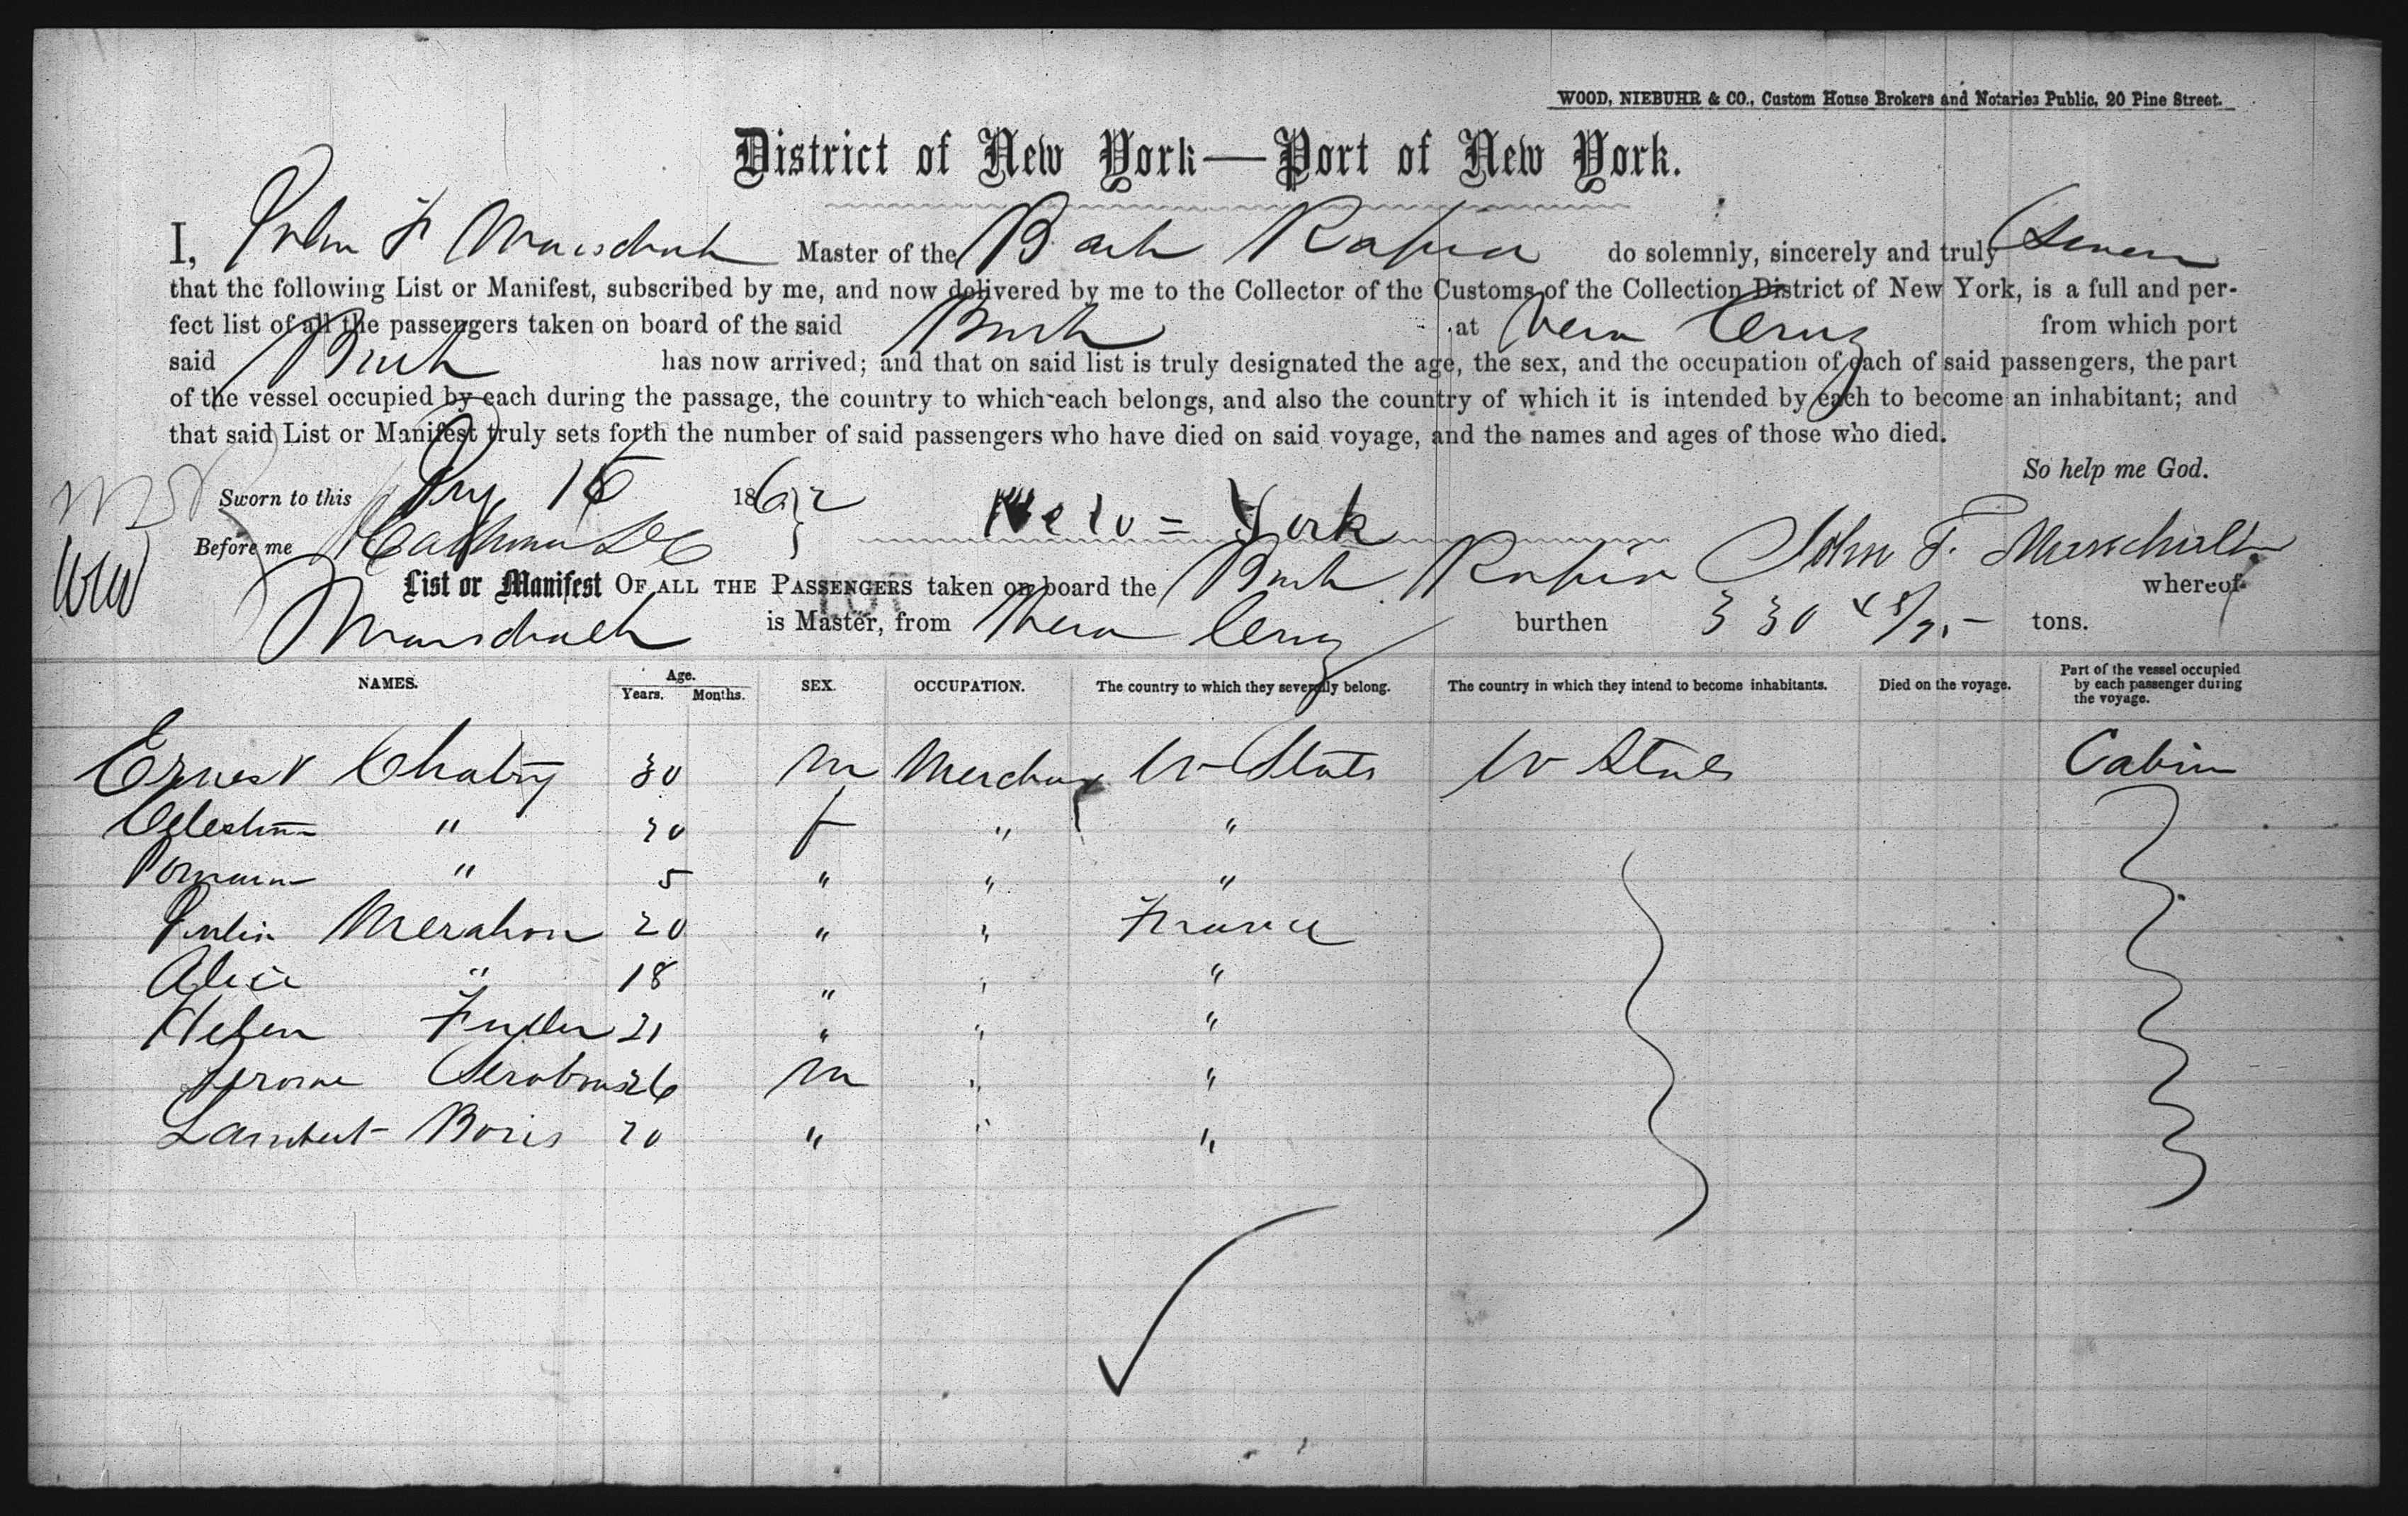 WOOD, NIEBUHR & CO., Custom House Brokers and Notaries Public, 20 Pine Street.
District of New York—Port of New York.
I, John F Master of the Bark Rapid do solemnly, sincerely and truly Swear
that the following List or Manifest, subscribed by me, and now delivered by me to the Collector of the Customs of the Collection District of New York, is a full and per-
fect list of all the passengers taken on board of the said Bark at Vera Cruz from which port
said Bark has now arrived; and that on said list is truly designated the age, the sex, and the occupation of each of said passengers, the part
of the vessel occupied by each during the passage, the country to which each belongs, and also the country of which it is intended by each to become an inhabitant; and
that said List or Manifest truly sets forth the number of said passengers who have died on said voyage, and the names and ages of those who died.
So help me God.
Sworn to this 1862 New = York
Before me John F.
List or Manifest OF ALL THE PASSENGERS taken on board the Bark whereof
is Master, from Vera Cruz burthen 330 tons.
NAMES. Age. Years. Months. SEX. OCCUPATION. The country to which they severally belong. The country in which they intend to become inhabitants. Died on the voyage. Part of the vessel occupied by each passenger during the voyage.
Ernest Chabry 30 m Merchant U States U States Cabin
Celestine " 20 f " "
" 5 " " "
20 " " France
Alice " 18 " " "
Helen Fuller 21 " " "
Jerome 26 m " "
Lambert Boris 20 " " "